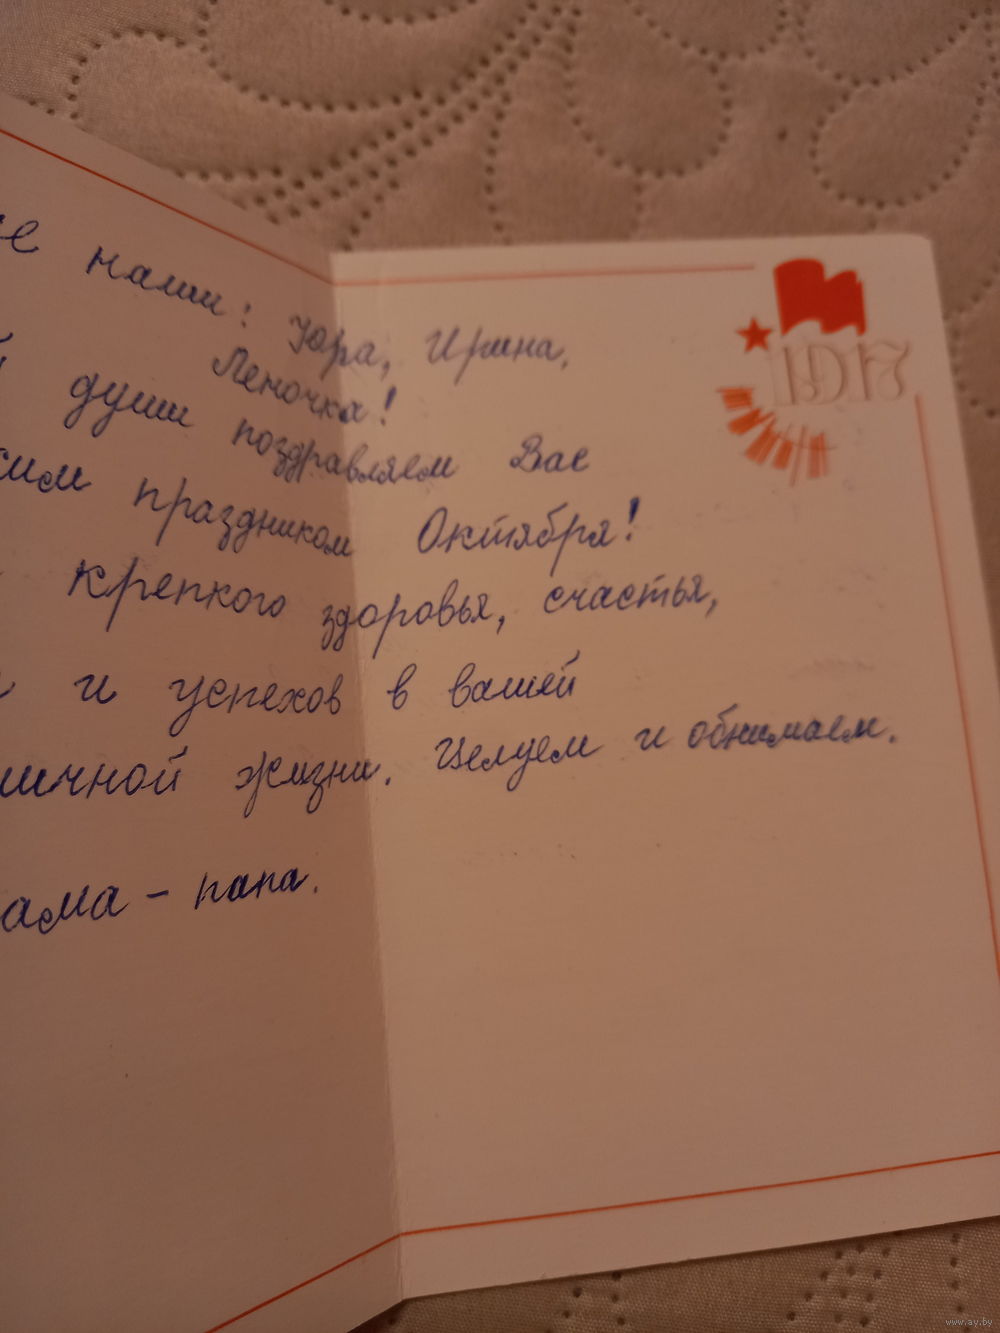 наши: Юра, Ирина,
Леночка!
души поздравляем Вас
праздником Октября!
крепкого здоровья, счастья,
и успехов в вашей
жизни. Целуем и обнимаем.
папа.
1917
www.ay.by